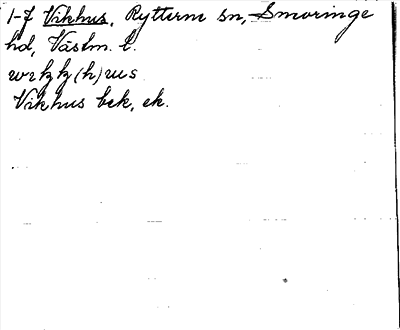 1-7 Vikhus, Rytterne sn, Snevringe
hd, Västm. l.
Vikhus bek, ek.